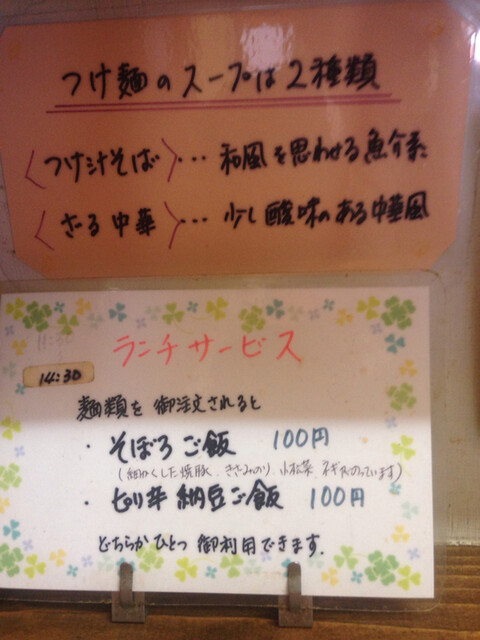 つけ麺のスープは2種類
〈つけ汁そば〉… 和風を思わせる魚介系
〈ざる中華〉… 少し酸味のある中華風
ランチサービス
14:30
麺類を御注文されると
・そぼろご飯 100円
(細かくした焼豚、きざみのり、小松菜、ネギがのっています)
・ピリ辛納豆ご飯 100円
どちらかひとつ御利用できます.